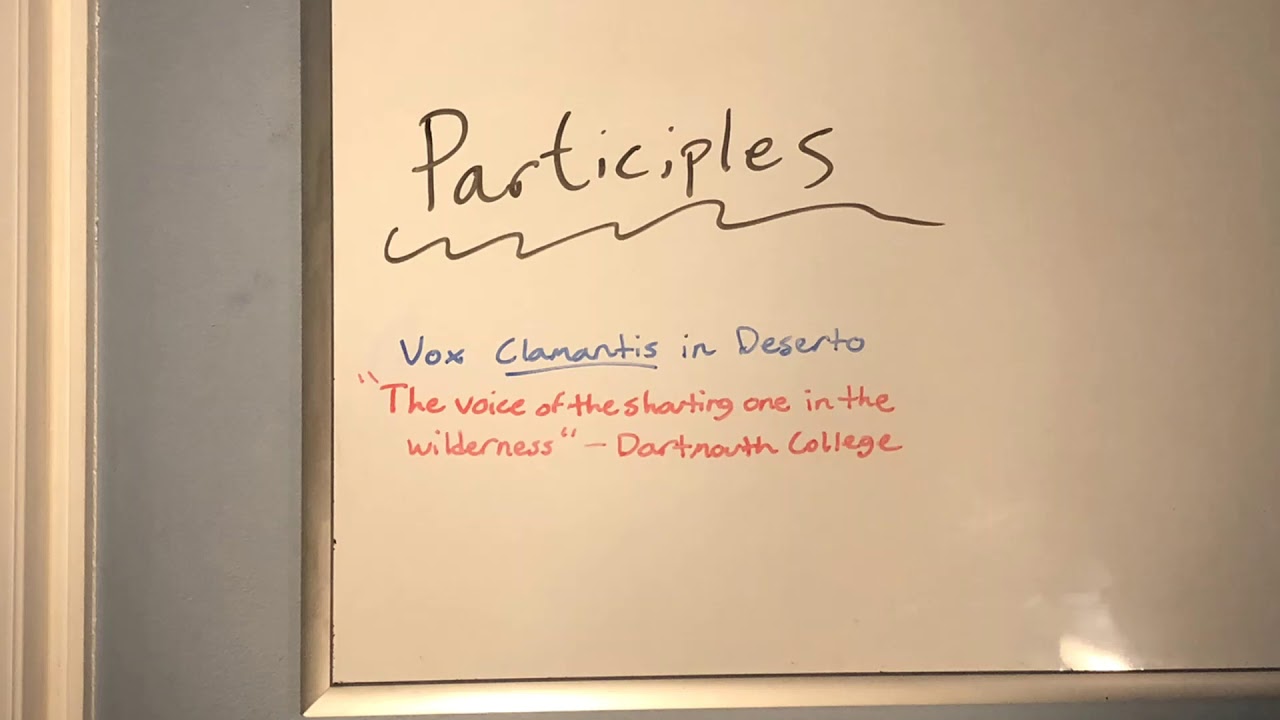 Participles
Vox Clamantis in Deserto
"The voice of the shouting one in the
wilderness" - Dartmouth College